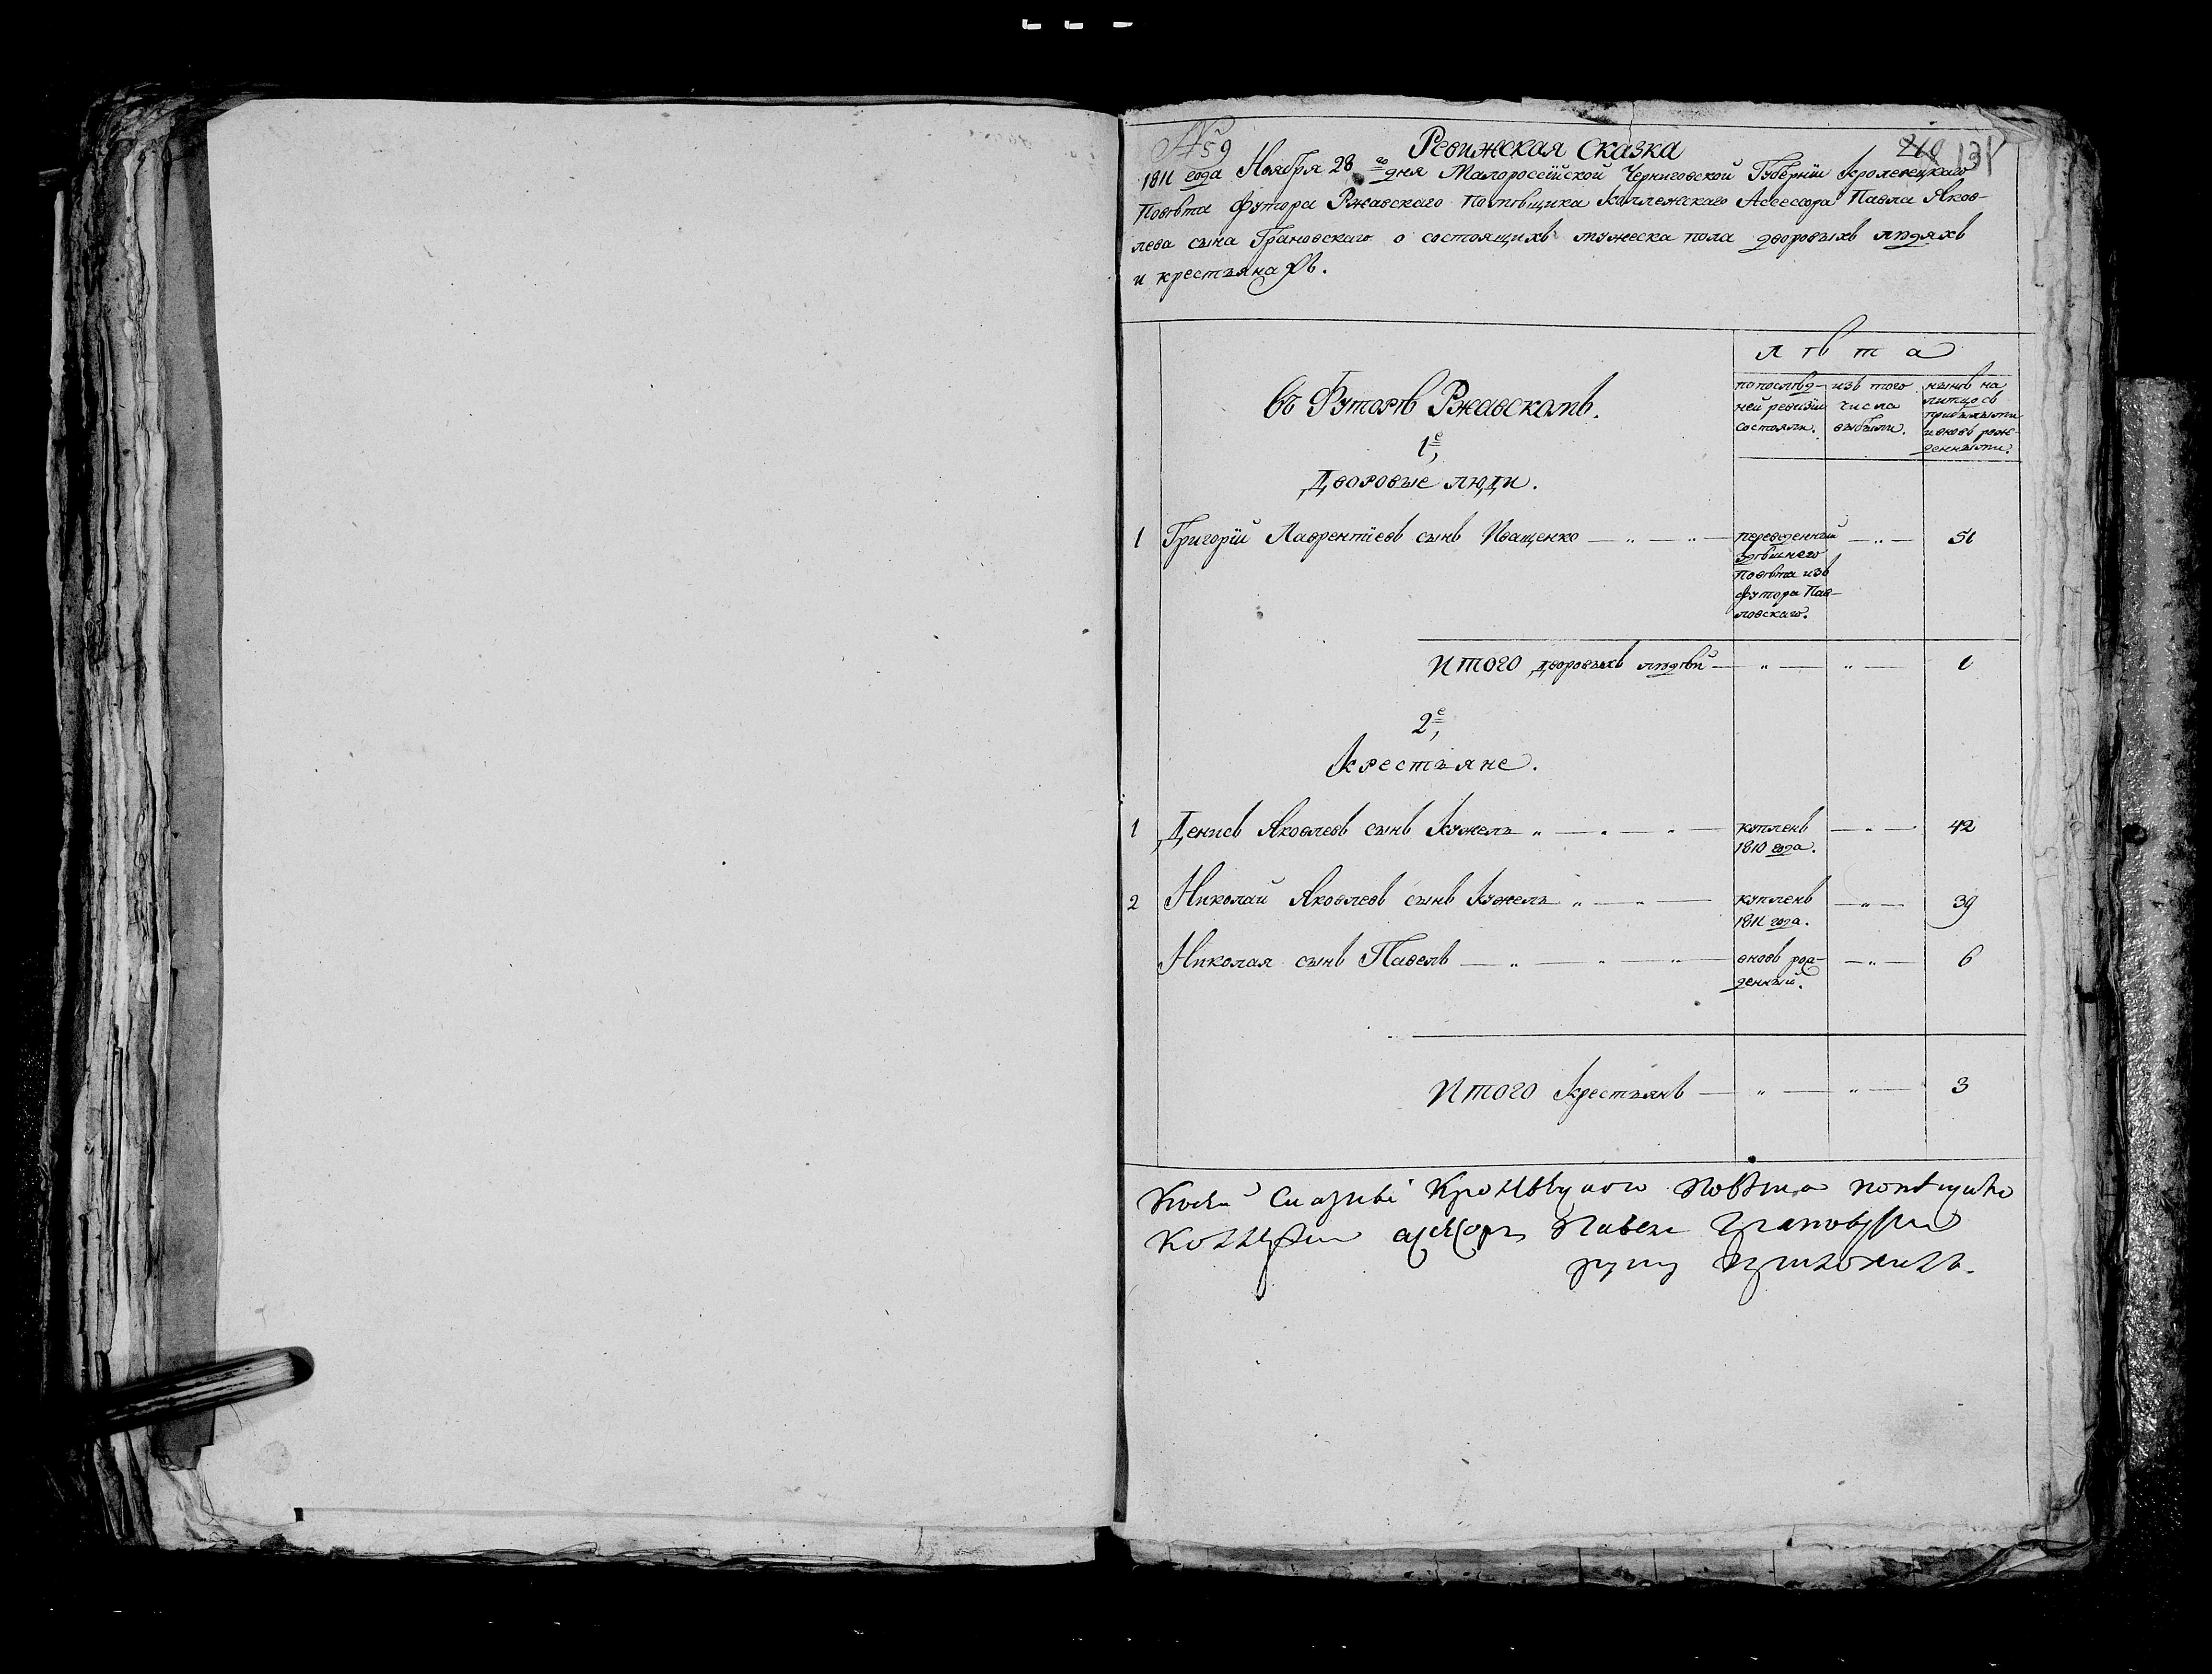 № 59
Ревижская Сказка
131
1811 года Ноября 28го дня Малороссійской Черниговской Губерніи Кролевецкаго
Повѣта Футора Ржавскаго Помѣщика Коллежскаго Ассесора Павла Яков-
лева сына Грановскаго о состоящихъ мужеска пола дворовыхъ людяхъ
и крестьянахъ.
лѣта
въ Футорѣ Ржавскомъ.
по послѣд- изъ того нынѣ на
ней ревизіи числа лицо съ
состояли. выбыли. прибылыми
и вновь рож-
денными.
1е,
Дворовые люди.
1 Григорій Лаврентіевъ сынъ Иващенко — „ — „ — переведенный — „ — 51
здѣшнего
повѣта изъ
футора Пав-
ловскаго.
Итого дворовыхъ людѣй — „ — „ — 1
2е,
Крестьяне.
1 Денисъ Яковлевъ сынъ Кужель „ — „ — „ — купленъ — „ — 42
1810 года.
2 Николай Яковлевъ сынъ Кужель „ — „ — купленъ — „ — 39
1811 года.
Николая сынъ Павелъ — „ — „ — „ — вновь рож- — „ — 6
денный.
Итого Крестьянъ — „ — „ — 3
Кролевецкого повѣта помѣщикъ
асесоръ Павелъ Грановский
руку приложилъ.